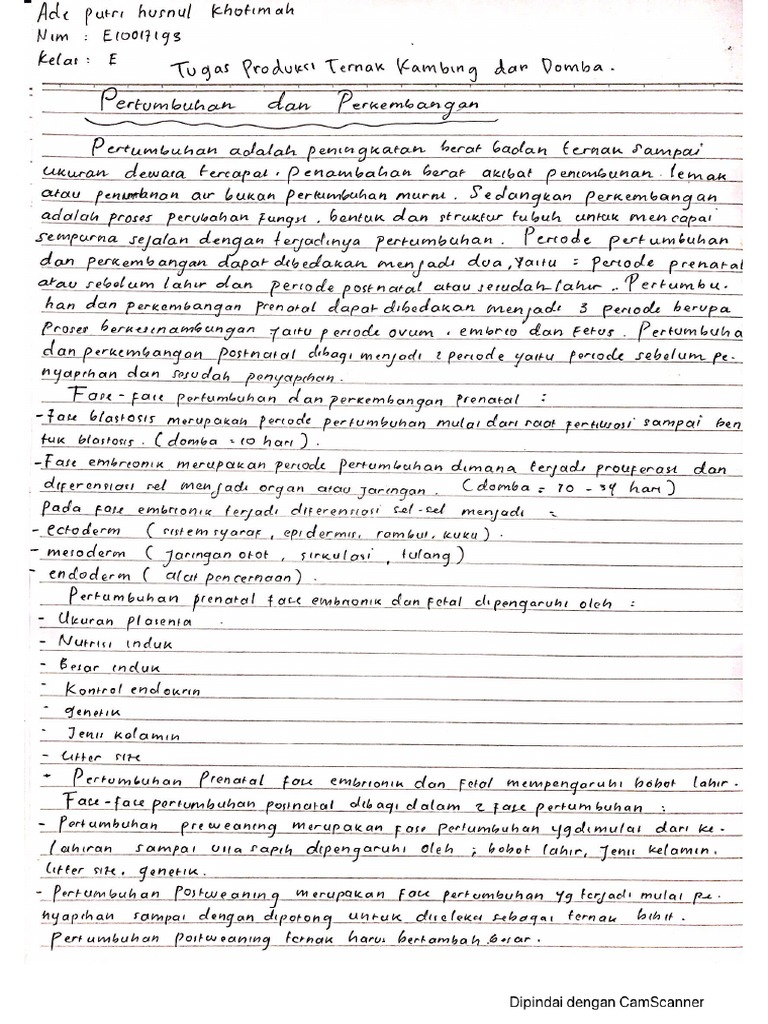 Ade putri husnul khotimah
Nim : E10017193
Kelas : E
Tugas Produksi Ternak Kambing dan Domba.
Pertumbuhan dan Perkembangan
Pertumbuhan adalah peningkatan berat badan ternak sampai
ukuran dewasa tercapai. Penambahan berat akibat penimbunan lemak
atau penimbunan air bukan pertumbuhan murni. Sedangkan perkembangan
adalah proses perubahan fungsi, bentuk dan struktur tubuh untuk mencapai
sempurna sejalan dengan terjadinya pertumbuhan. Periode pertumbuhan
dan perkembangan dapat dibedakan menjadi dua, yaitu : periode prenatal
atau sebelum lahir dan periode postnatal atau sesudah lahir.. Pertumbu-
han dan perkembangan prenatal dapat dibedakan menjadi 3 periode berupa
proses berkesinambungan yaitu periode ovum, embrio dan fetus. Pertumbuha
dan perkembangan postnatal dibagi menjadi 2 periode yaitu periode sebelum pe-
nyapihan dan sesudah penyapihan.
Fase-fase pertumbuhan dan perkembangan prenatal :
- Fase blastosis merupakan periode pertumbuhan mulai dari saat fertilisasi sampai ben
tuk blastosis. (domba = 10 hari).
- Fase embrionik merupakan periode pertumbuhan dimana terjadi proliferasi dan
diferensiasi sel menjadi organ atau jaringan. (domba = 10 - 34 hari)
pada fase embrionik terjadi diferensiasi sel-sel menjadi =
- ectoderm (sistem syaraf, epidermis, rambut, kuku).
- mesoderm (jaringan otot, sirkulasi, tulang)
- endoderm (alat pencernaan).
Pertumbuhan prenatal fase embrionik dan fetal dipengaruhi oleh :
- Ukuran plasenta
- Nutrisi induk
- Besar induk
- Kontrol endokrin
- genetik
- Jenis kelamin
- Litter size
- Pertumbuhan Prenatal fase embrionik dan fetal mempengaruhi bobot lahir.
Fase-fase pertumbuhan postnatal dibagi dalam 2 fase pertumbuhan :
- Pertumbuhan preweaning merupakan fase pertumbuhan yg dimulai dari ke-
lahiran sampai usia sapih dipengaruhi oleh ; bobot lahir, Jenis kelamin.
Litter size, genetik.
- Pertumbuhan Postweaning merupakan fase pertumbuhan yg terjadi mulai pe-
nyapihan sampai dengan dipotong untuk diseleksi sebagai ternak bibit.
Pertumbuhan postweaning ternak harus bertambah besar.
Dipindai dengan CamScanner